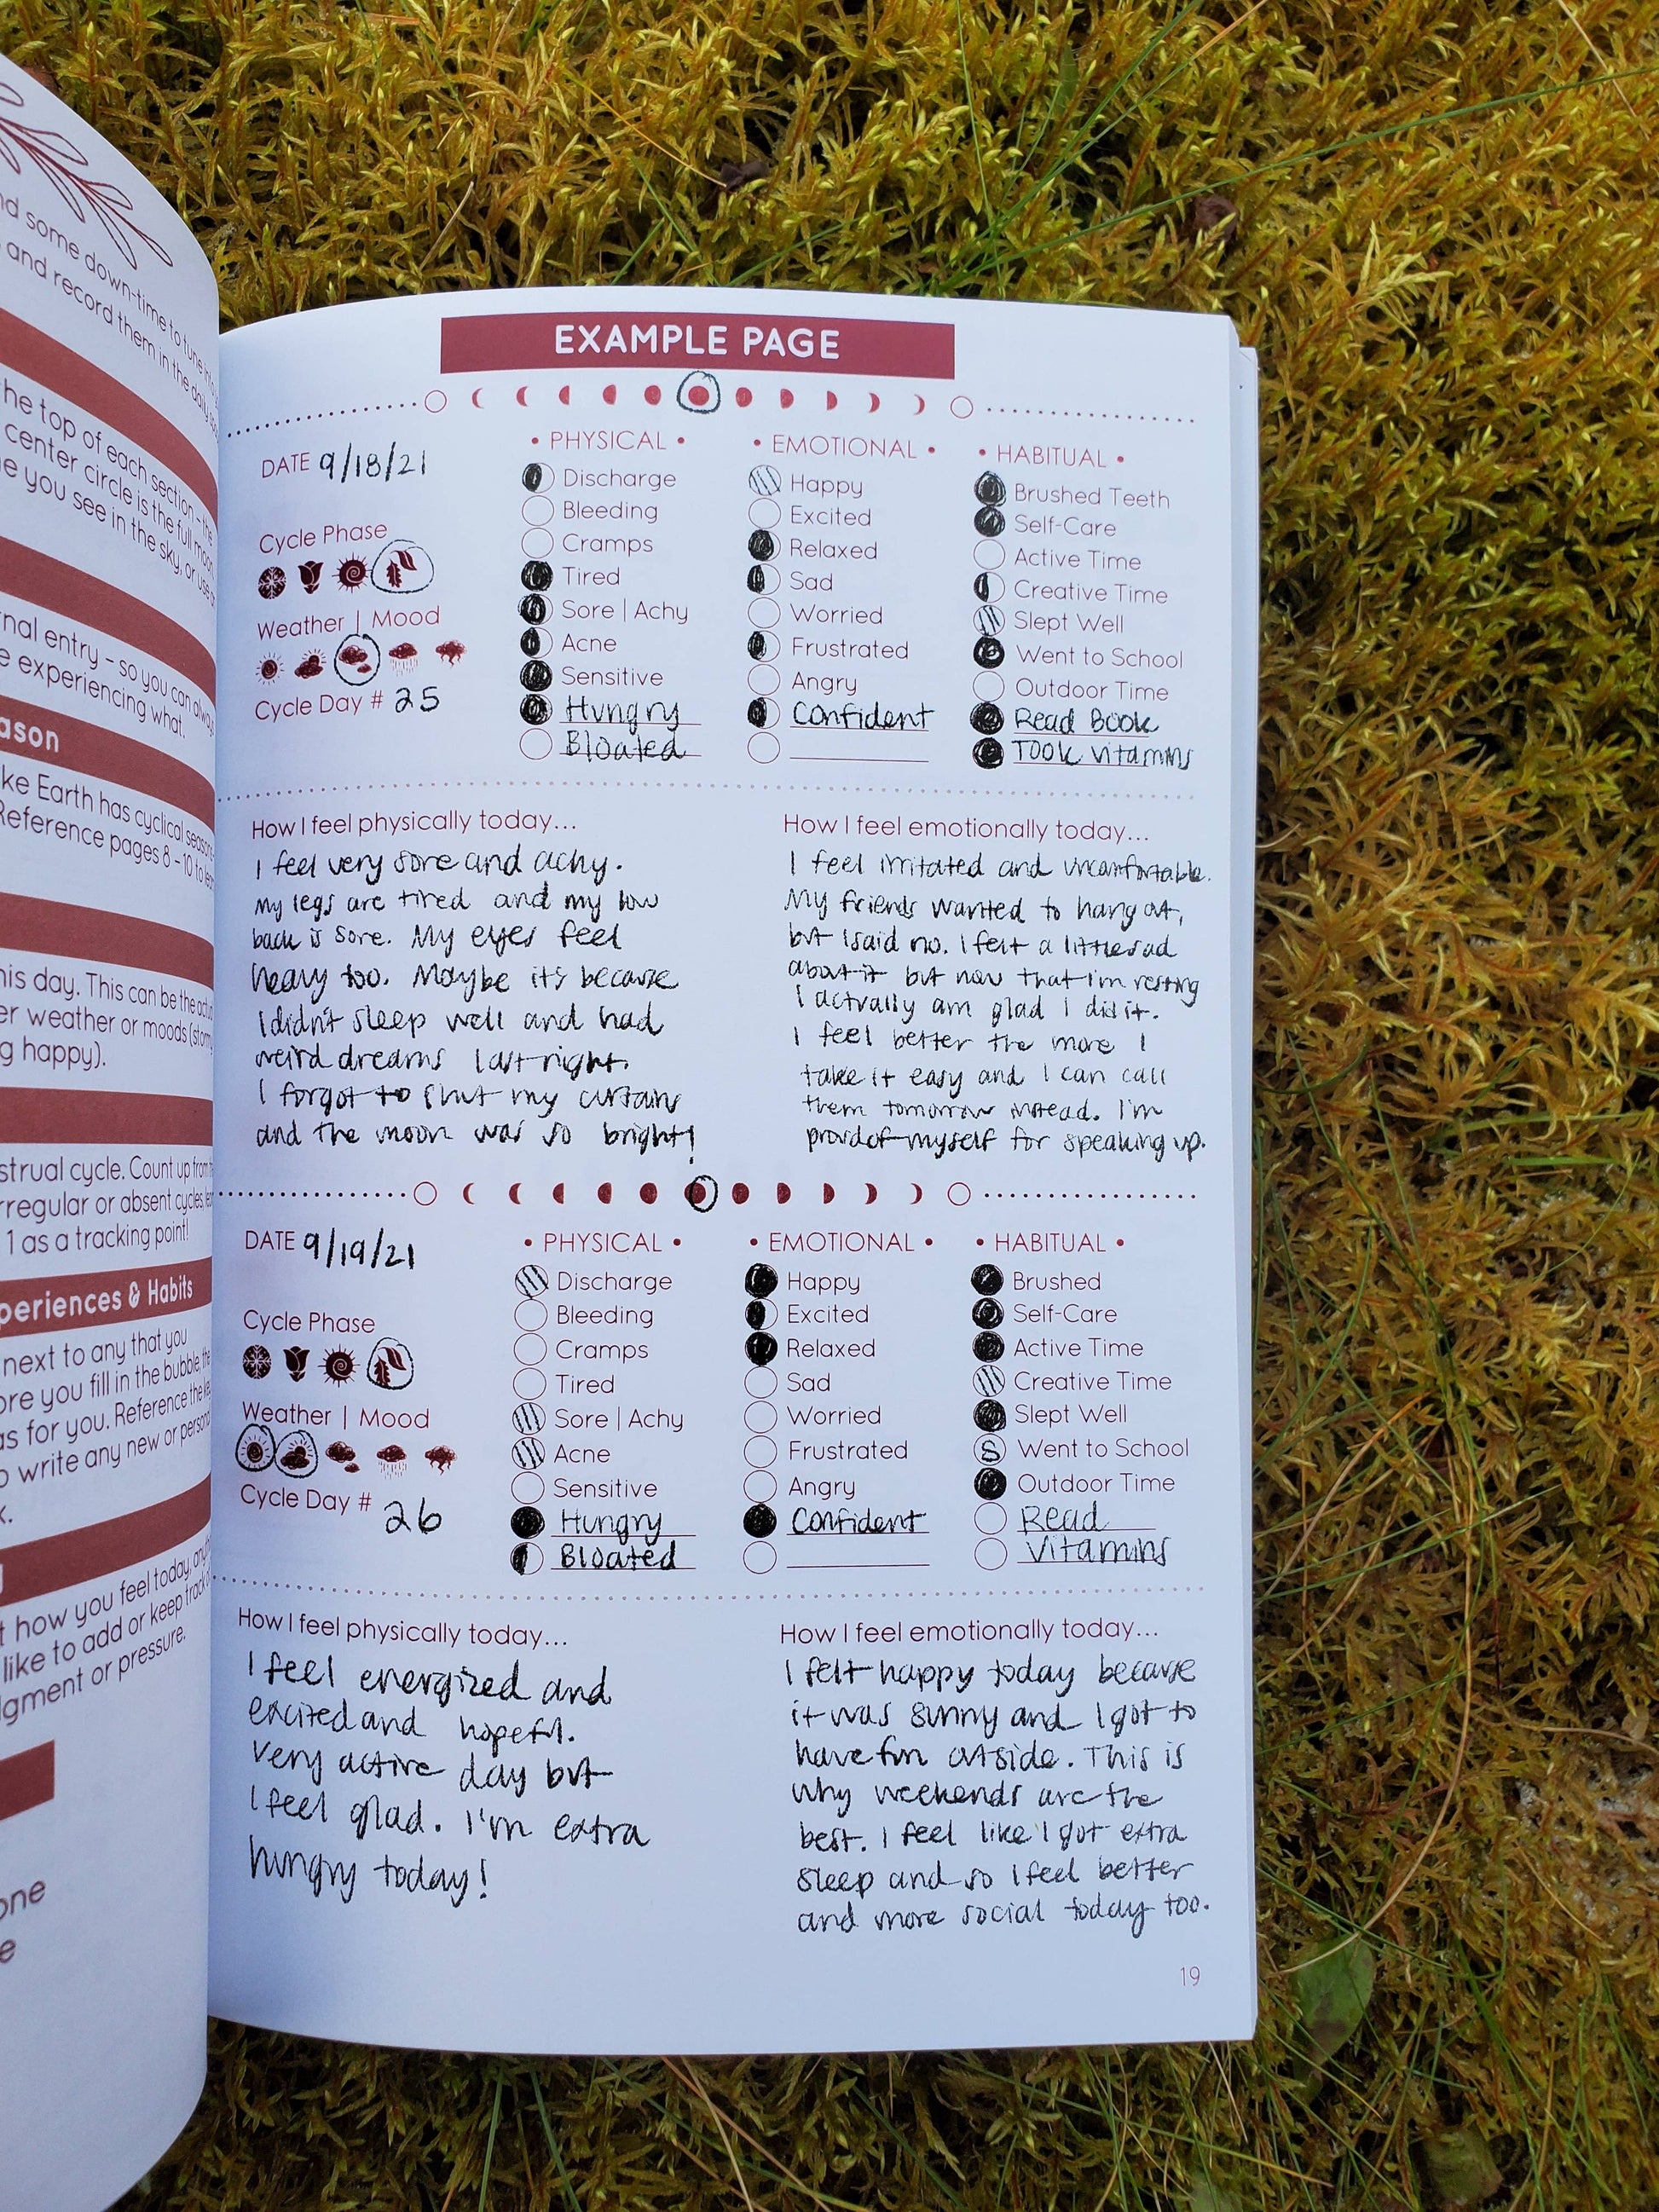 nd some down-time to tune in
and record them in the daily
the top of each section - the
center circle is the full moon
e you see in the sky, or use
rnal entry - so you can always
e experiencing what.
ason
ke Earth has cyclical seasons
Reference pages 8 - 10 to
his day. This can be the actual
er weather or moods (stormy
g happy).
strual cycle. Count up from
rregular or absent cycles
1 as a tracking point!
periences & Habits
next to any that you
ore you fill in the bubble, the
as for you. Reference the key
o write any new or personal
k.
t how you feel today,
like to add or keep track
dgment or pressure.
one
e
EXAMPLE PAGE
DATE 9/18/21
Cycle Phase
Weather | Mood
Cycle Day # 25
• PHYSICAL •
Discharge
Bleeding
Cramps
Tired
Sore | Achy
Acne
Sensitive
Hungry
Bloated
• EMOTIONAL •
Happy
Excited
Relaxed
Sad
Worried
Frustrated
Angry
Confident
• HABITUAL •
Brushed Teeth
Self-Care
Active Time
Creative Time
Slept Well
Went to School
Outdoor Time
Read Book
Took vitamins
How I feel physically today...
I feel very sore and achy.
My legs are tired and my low
back is sore. My eyes feel
heavy too. Maybe it's because
I didn't sleep well and had
weird dreams last night.
I forgot to shut my curtains
and the moon was so bright!
How I feel emotionally today...
I feel irritated and uncomfortable.
My friends wanted to hang out,
but I said no. I felt a little sad
about it but now that I'm resting
I actually am glad I did it.
I feel better the more I
take it easy and I can call
them tomorrow instead. I'm
proud of myself for speaking up.
DATE 9/19/21
Cycle Phase
Weather | Mood
Cycle Day # 26
• PHYSICAL •
Discharge
Bleeding
Cramps
Tired
Sore | Achy
Acne
Sensitive
Hungry
Bloated
• EMOTIONAL •
Happy
Excited
Relaxed
Sad
Worried
Frustrated
Angry
Confident
• HABITUAL •
Brushed
Self-Care
Active Time
Creative Time
Slept Well
S Went to School
Outdoor Time
Read
Vitamins
How I feel physically today...
I feel energized and
excited and hopeful.
Very active day but
I feel glad. I'm extra
hungry today!
How I feel emotionally today...
I felt happy today because
it was sunny and I got to
have fun outside. This is
why weekends are the
best. I feel like I got extra
sleep and so I feel better
and more social today too.
19